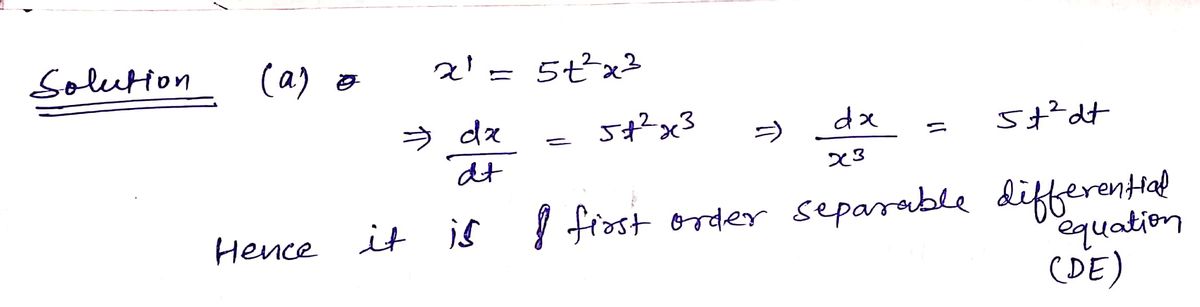 Solution (a) x' = 5t²x³
⇒ dx/dt = 5t²x³ ⇒ dx/x³ = 5t²dt
Hence it is first order separable differential
equation
(DE)